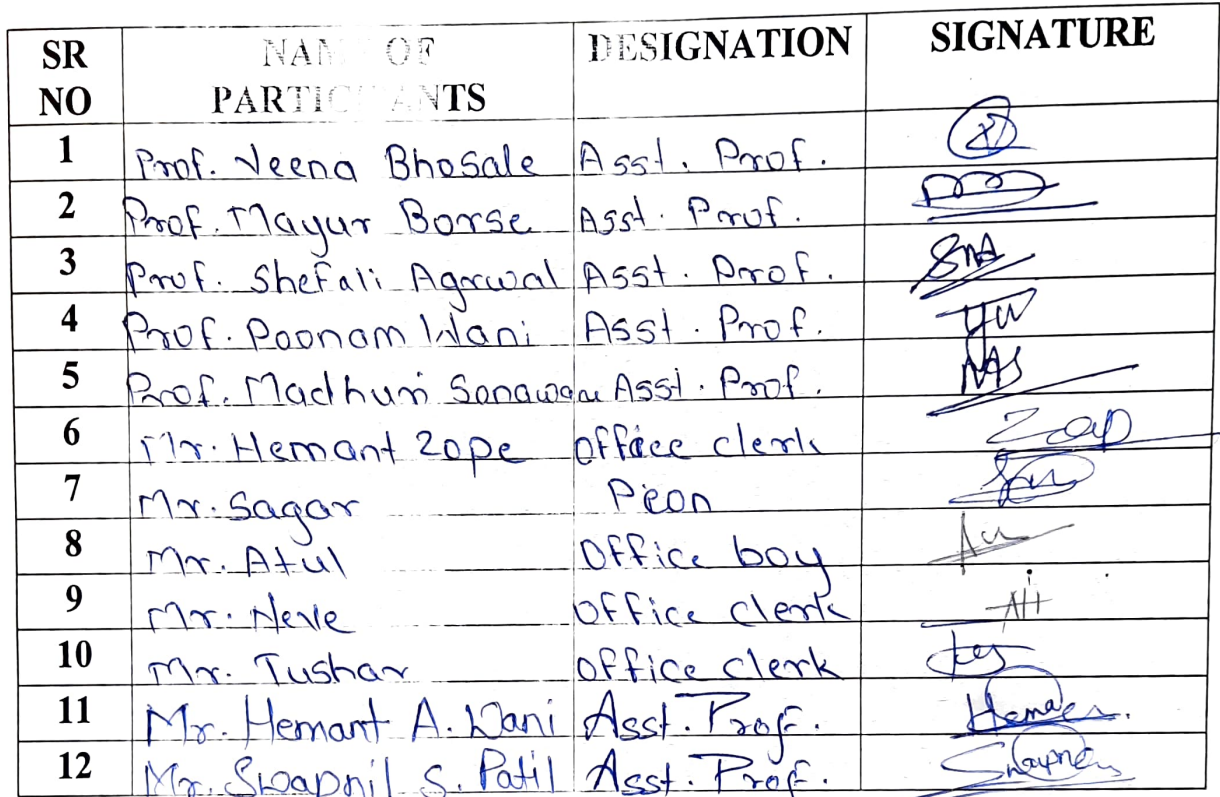 SR NO NAME OF PARTICIPANTS DESIGNATION SIGNATURE
1 Prof. Veena Bhosale Asst. Prof.
2 Prof. Mayur Borse Asst. Prof.
3 Prof. Shefali Agrwal Asst. Prof.
4 Prof. Poonam Wani Asst. Prof.
5 Prof. Madhuri Sonawane Asst. Prof.
6 Mr. Hemant Zope office clerk Zop
7 Mr. Sagar Peon
8 Mr. Atul Office boy
9 Mr. Neve office clerk
10 Mr. Tushar office clerk
11 Mr. Hemant A. Wani Asst. Prof.
12 Mr. Swapnil S. Patil Asst. Prof.